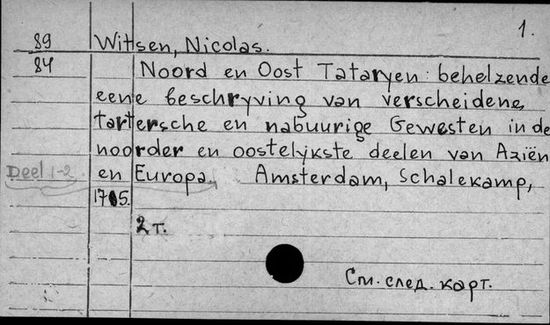 1.
89 Witsen, Nicolas.
84 Noord en Oost Tataryen: behelzende
eene beschryving van verscheidene
tartersche en nabuurige Gewesten in de
noorder en oostelykste deelen van Aziën
Deel 1-2 en Europa. Amsterdam, Schalekamp,
1705.
2 т.
См. след. карт.